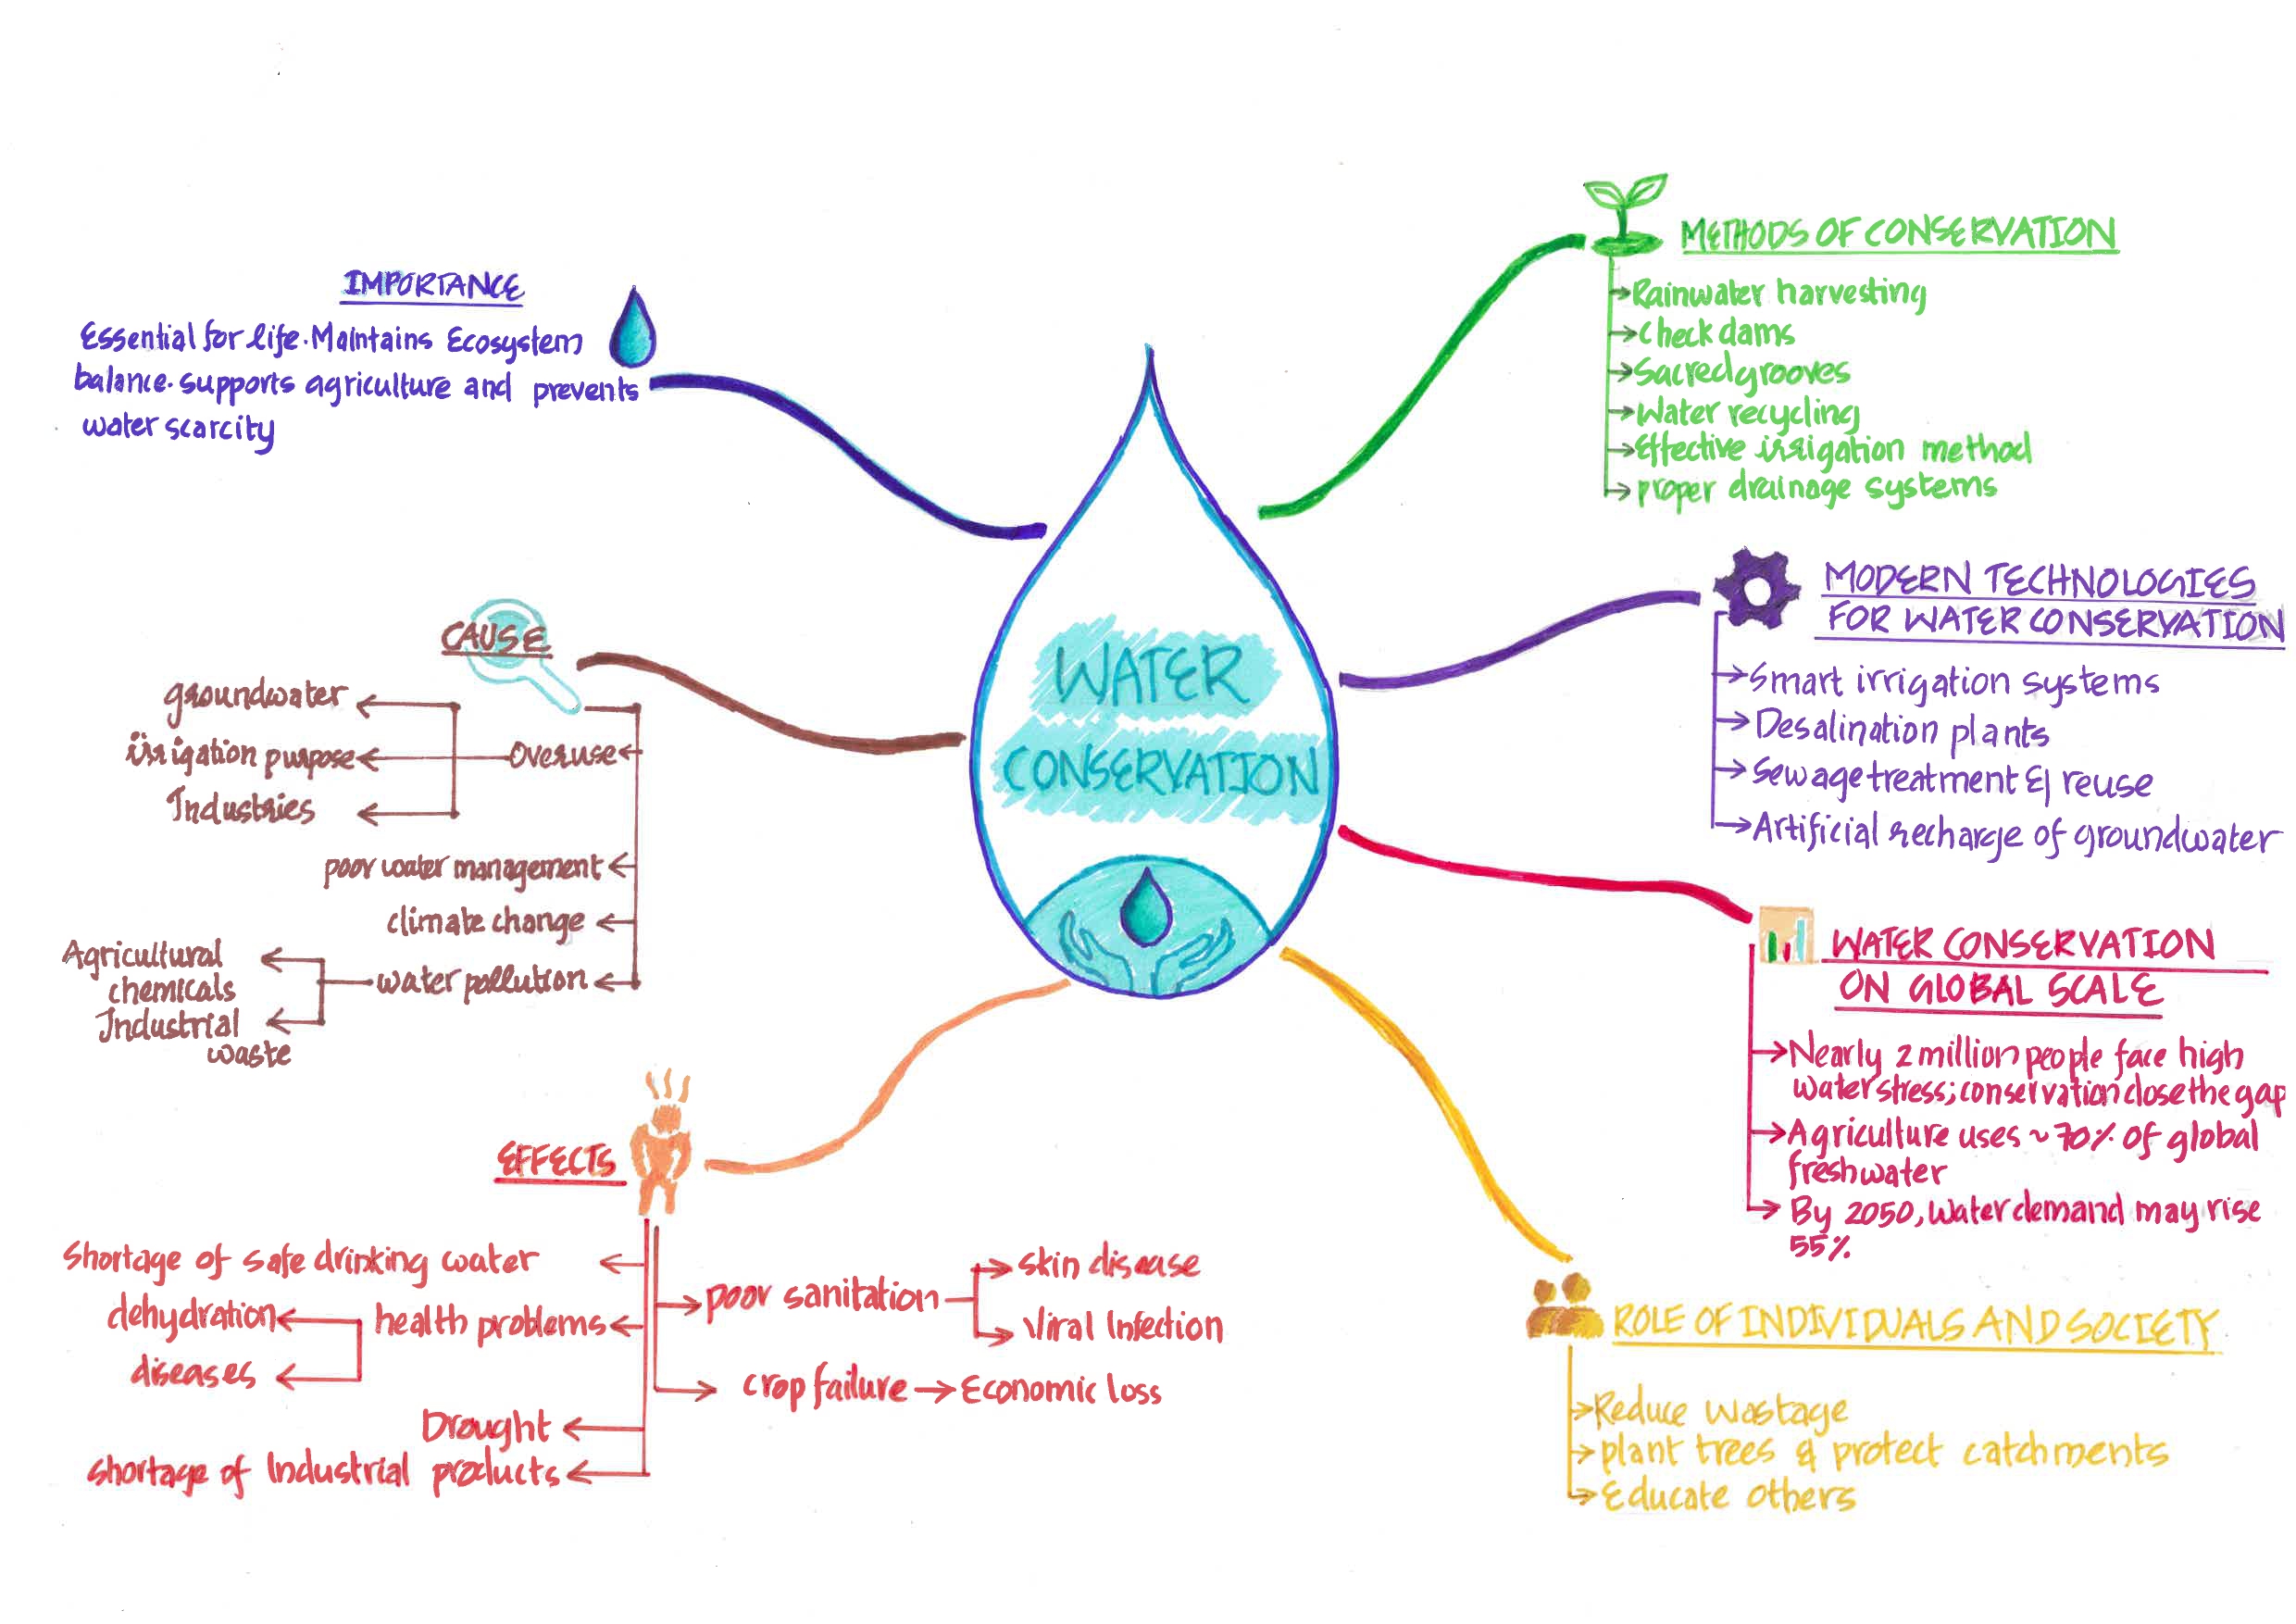 WATER
CONSERVATION
IMPORTANCE
Essential for life. Maintains Ecosystem
balance. supports agriculture and prevents
water scarcity
CAUSE
Overuse
groundwater
irrigation purpose
Industries
poor water management
climate change
water pollution
Agricultural
chemicals
Industrial
waste
EFFECTS
Shortage of safe drinking water
health problems
dehydration
diseases
Drought
shortage of Industrial products
poor sanitation
skin disease
Viral Infection
crop failure → Economic loss
METHODS OF CONSERVATION
Rainwater harvesting
Check dams
Sacred grooves
Water recycling
Effective irrigation method
proper drainage systems
MODERN TECHNOLOGIES
FOR WATER CONSERVATION
Smart irrigation systems
Desalination plants
Sewage treatment & reuse
Artificial recharge of groundwater
WATER CONSERVATION
ON GLOBAL SCALE
Nearly 2 million people face high
water stress; conservation close the gap
Agriculture uses ~70% of global
freshwater
By 2050, water demand may rise
55%
ROLE OF INDIVIDUALS AND SOCIETY
Reduce Wastage
plant trees & protect catchments
Educate others